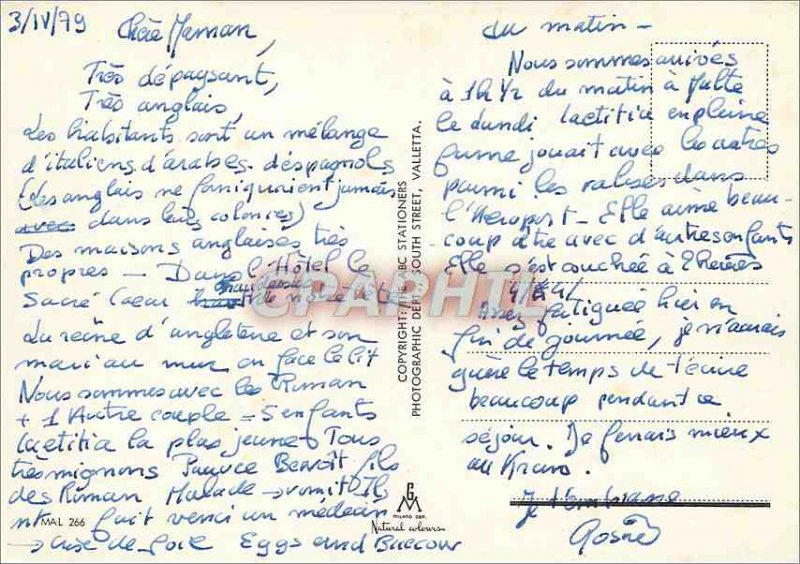 3/IV/79 Chère Maman,
Très dépaysant,
Très anglais,
Les habitants sont un mélange
d'italiens, d'arabes, d'éspagnols
(les anglais ne jamais
avec dans leurs colonies)
Des maisons anglaises très
propres — Dans l'Hôtel le
Sacré Coeur au dessus
de notre lit
La reine d'angleterre et son
mari au mur en face le lit
Nous sommes avec les Riman
+ 1 Autre couple = 5 enfants
Laetitia la plus jeune. Tous
très mignons Pauvre Benoît fils
des Riman Malade → vomit. Ils
ont fait venir un médecin
→ crise de foie Eggs and Baccow
MAL 266
COPYRIGHT: THE ABC STATIONERS
PHOTOGRAPHIC DEPT. SOUTH STREET, VALLETTA.
GM
MILANO DEP.
Natural colours
CPAPHIL
du matin —
Nous sommes arrivés
à 1h 1/2 du matin à Malte
le Lundi Laetitia en pleine
forme jouait avec les autres
parmi les valises dans
l'Aéroport — Elle aime beau-
coup être avec d'autres enfants
Elle s'est couchée à 2 heures
Assez fatiguée hier en
fin de journée, je n'aurais
guère le temps de t'écrire
beaucoup pendant ce
séjour. Je ferais mieux
au
Je t'embrasse